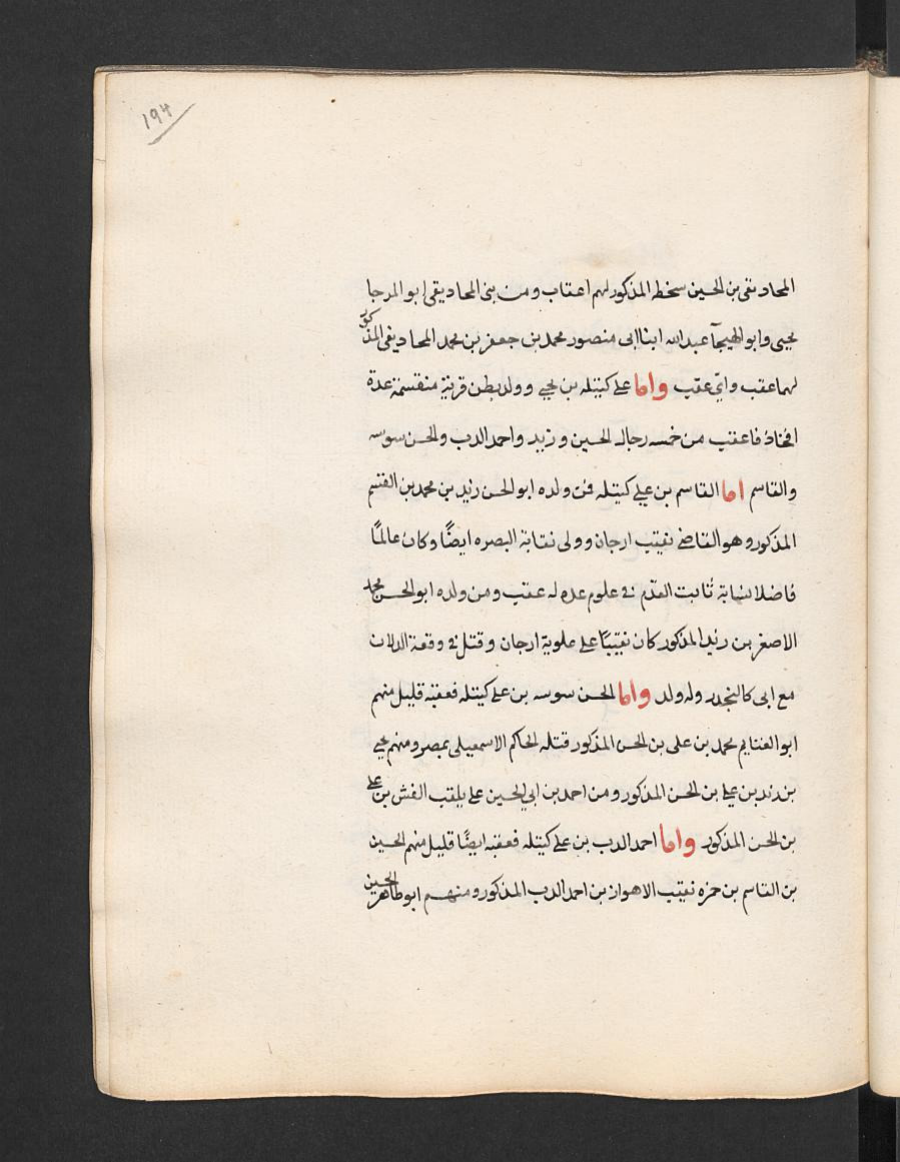 ١٩٤
المحاديقى بن الحسين سخطه المذكور لهم اعقاب ومن بنى المحاديقى ابو المرجا
يحيى وابو الهيجآ عبد الله ابنا ابى منصور محمد بن جعفر بن محمد المحاديقى المذكور
لهما عقب واى عقب واما على كتيله بن يحيى وولده بطن قرية منقسمة عدة
افخاذ فاعقب من خمسه رجال الحسين وزيد واحمد الدب والحسن سوسه
والقاسم اما القاسم بن على كتيله فمن ولده ابو الحسن زيد بن محمد بن القسم
المذكور وهو القاضى نقيب ارجان وولى نقابة البصره ايضًا وكان عالمًا
فاضلا نسابة ثابت القدم فى علوم عده له عقب ومن ولده ابو الحسن محمد
الاصغر بن زيد المذكور كان نقيبًا على علوية ارجان وقتل فى وقعة الدلان
مع ابى كاليجدر وله ولد واما الحسن سوسه بن على كتيله فعقبه قليل منهم
ابو الغنايم محمد بن على بن الحسن المذكور قتله الحاكم الاسمعيلى بمصر ومنهم يحيى
بن زيد بن على بن الحسن المذكور ومن احمد بن ابى الحسين على يلقب الفش بن على
بن الحسن المذكور واما احمد الدب بن على كتيله فعقبه ايضًا قليل منهم الحسين
بن القاسم بن حمزه نقيب الاهواز بن احمد الدب المذكور ومنهم ابو طاهر الحسين